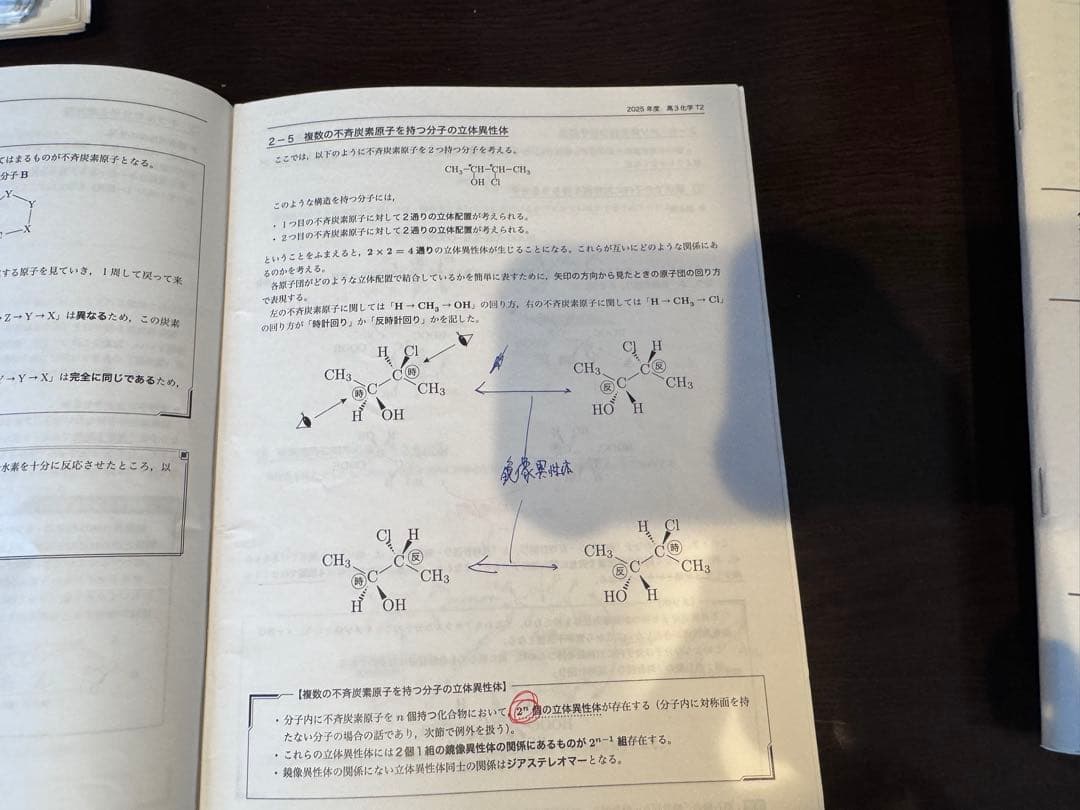 てはまるものが不斉炭素原子となる。
分子B
Y
Y
X
する原子を見ていき，1周して戻って来
→Z→Y→X」は異なるため，この炭素
Y→Y→X」は完全に同じであるため，
水素を十分に反応させたところ，以
2025年度 高3化学T2
2－5 複数の不斉炭素原子を持つ分子の立体異性体
ここでは，以下のように不斉炭素原子を2つ持つ分子を考える。
CH₃-*CH-*CH-CH₃
OH Cl
このような構造を持つ分子には，
・1つ目の不斉炭素原子に対して2通りの立体配置が考えられる。
・2つ目の不斉炭素原子に対して2通りの立体配置が考えられる。
ということをふまえると，2×2＝4通りの立体異性体が生じることになる。これらが互いにどのような関係にあ
るのかを考える。
各原子団がどのような立体配置で結合しているかを簡単に表すために，矢印の方向から見たときの原子団の回り方
で表現する。
左の不斉炭素原子に関しては「H→CH₃→OH」の回り方，右の不斉炭素原子に関しては「H→CH₃→Cl」
の回り方が「時計回り」か「反時計回り」かを記した。
H Cl
CH₃ C 時
時 C CH₃
H OH
Cl H
CH₃ C 反
反 C CH₃
HO H
鏡像異性体
Cl H
CH₃ C 反
時 C CH₃
H OH
H Cl
CH₃ C 時
反 C CH₃
HO H
【複数の不斉炭素原子を持つ分子の立体異性体】
・分子内に不斉炭素原子をn個持つ化合物において，2ⁿ個の立体異性体が存在する（分子内に対称面を持
たない分子の場合の話であり，次節で例外を扱う）。
・これらの立体異性体には2個1組の鏡像異性体の関係にあるものが2ⁿ⁻¹組存在する。
・鏡像異性体の関係にない立体異性体同士の関係はジアステレオマーとなる。